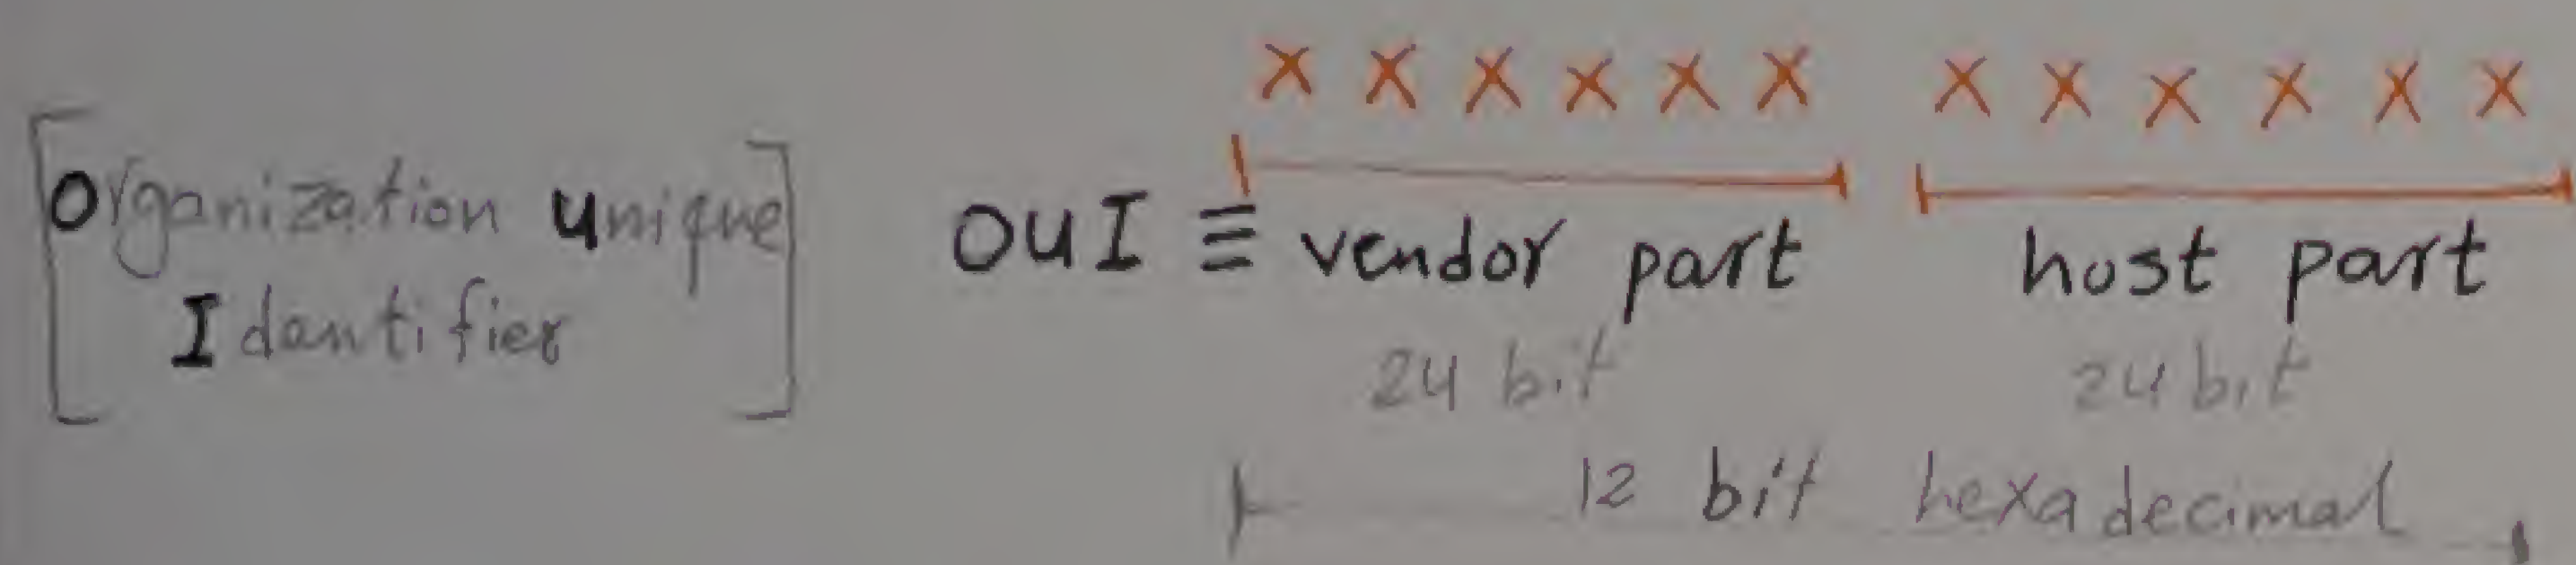 X X X X X X X X X X X X
[Organization Unique
Identifier]
OUI ≡ vendor part host part
24 bit 24 bit
12 bit hexadecimal